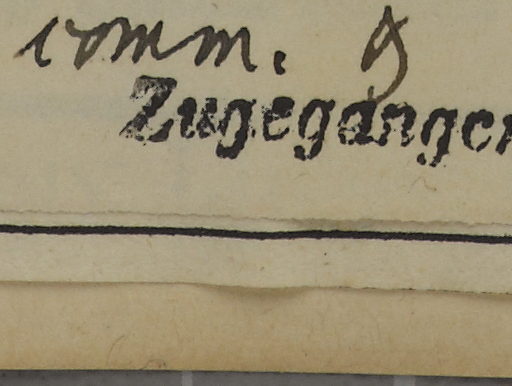 comm. 9
Zugegangen